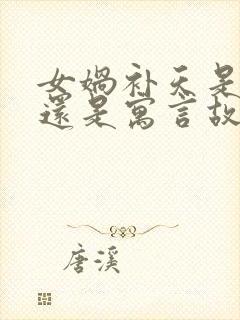 女娲补天是
還是寓言故
唐溪